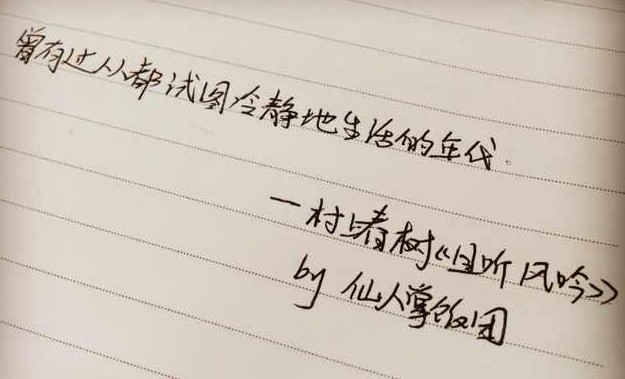 曾有过人人都试图冷静地生活的年代。
—村上春树《且听风吟》
by 仙人掌饭团